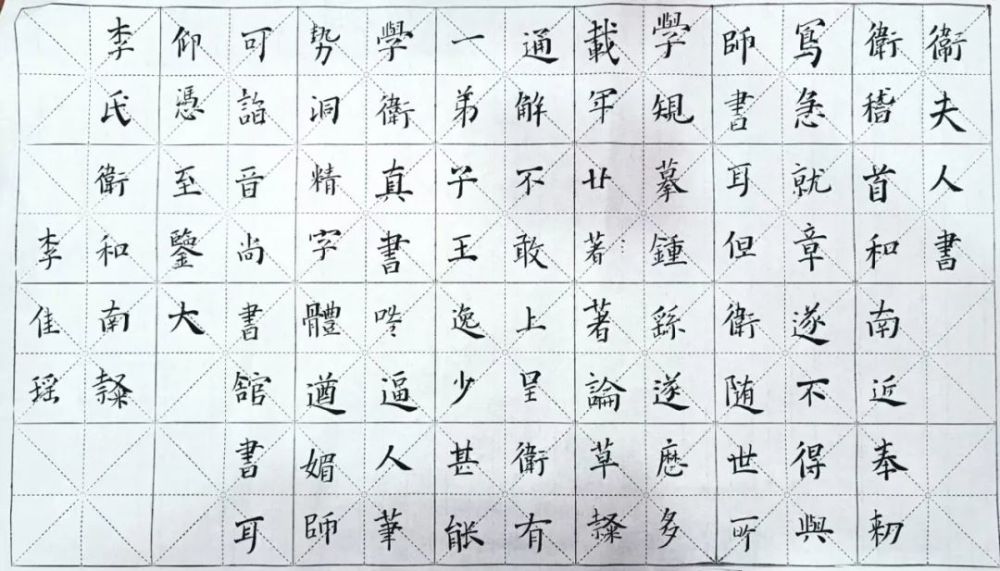 衛夫人書
衛稽首和南近奉勅
寫急就章遂不得與
師書耳但衛随世所
學規摹鍾繇遂歷多
載年廿著著論草隸
通解不敢上呈衛有
一弟子王逸少甚能
學衛真書咄々逼人筆
勢洞精字體遒媚師
可詣晉尚書館書耳
仰憑至鑒大
李氏衛和南隸
李佳瑶